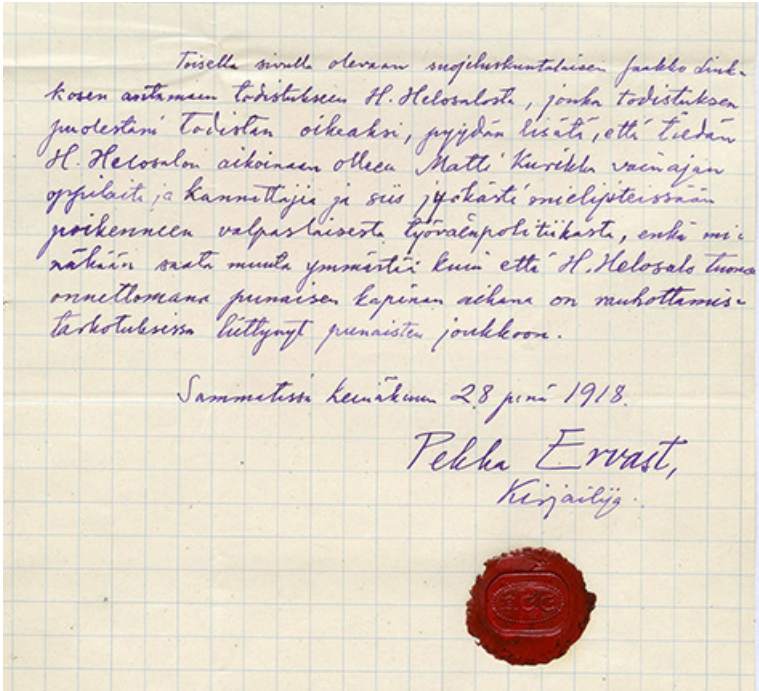 Toisella sivulla olevaan suojeluskuntalaisen Jaakko Link-
kosen antamaan todistukseen H. Helosalosta, jonka todistuksen
puolestani todistan oikeaksi, pyydän lisätä, että tiedän
H. Helosalon aikoinaan olleen Matti Kurikka vainajan
oppilaita ja kannattajia ja siis jyrkästi mielipiteissään
poikenneen valpaslaisesta työväenpolitiikasta, enkä mi-
näkään saata muuta ymmärtää kuin että H. Helosalo tuona
onnettomana punaisen kapinan aikana on rauhottamis-
tarkotuksissa liittynyt punaisten joukkoon.
Sammatissa heinäkuun 28 pnä 1918.
Pekka Ervast,
Kirjailija.